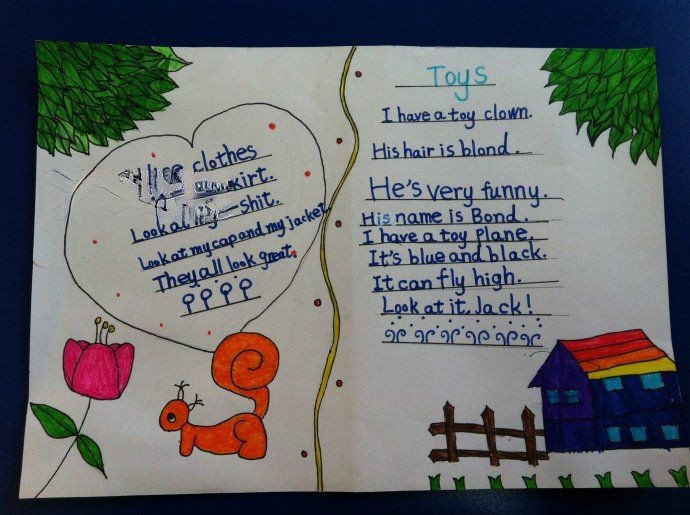 clothes
kirt.
Look at my shit.
Look at my cap and my jacket
They all look great.
Toys
I have a toy clown.
His hair is blond.
He's very funny.
His name is Bond.
I have a toy Plane.
It's blue and black.
It can fly high.
Look at it, Jack!